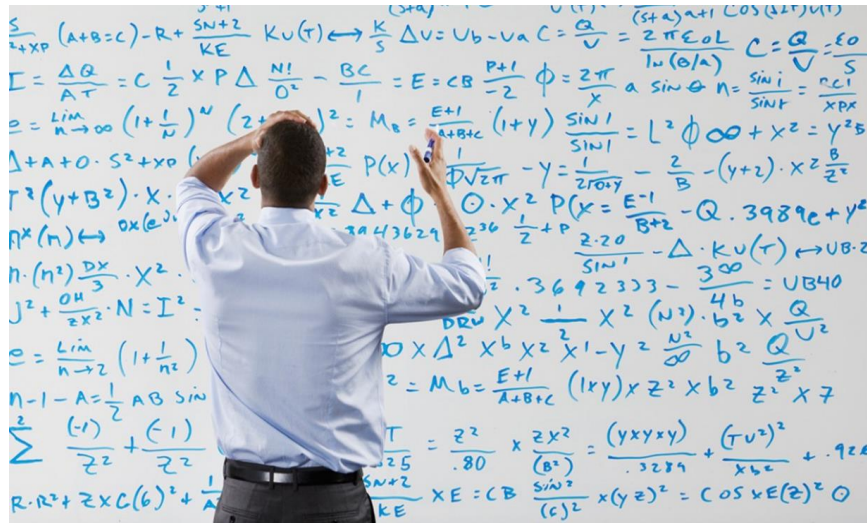 S/²+XP (A+B=C)-R+ SN+2/KE KU(T)⟷ K/S ΔU=Ub-Ua C=Q/V = 2πεoL/ln(B/a) C=Q/V=εo/S
I = ΔQ/AT = C 1/2 X P Δ N!/O² - BC/1 = E = CB P+1/-2 ϕ = 2π/X a sin θ n = sin i/sin r =
e = Lim n→∞ (1+1/N)^N (2+ )² = M_B = E+1/A+B+C (1+y) SIN1/SIN1 = L² ϕ ∞ + X² = y²B
Δ+A+O·S²+XP P(X) 1/ϕ√2π -y = - 2/B - (y+2)·X² B/Z²
T²(y+B²)·X· X² Δ+ϕ O·X² P(X= E-1/B+2 -Q.3989e+y²
n^x(n)⟷ 3943629 236 1/2+P 2·20/SIN1 -Δ·KU(T)⟷UB·2
n·(n²) DX/3 ·X² .3692333- 3∞/4b = UB40
J²+ OH/ZX² ·N=I² DRU X² 1/2 X² (N²)·b² X Q/U²
e = Lim n→2 (1+1/n²) ∞ X Δ² X^b X² X'-y² N²/∞ b² Q/Z²
n-1-A=1/2 AB SIN ² = Mb = E+1/A+B+C (1xy) X Z² X b² Z² X 7
2 Σ (-1)/Z² + (-1)/Z² T/25 = Z²/.80 X ZX²/(B²) = (yxyxy)/.3289 + (TU²)²/Xb² +.92
R·R²+ZXC(6)²+ SN+2/KE XE=CB SIN²/(6)² X(yZ)² = COSXE(Z)² O